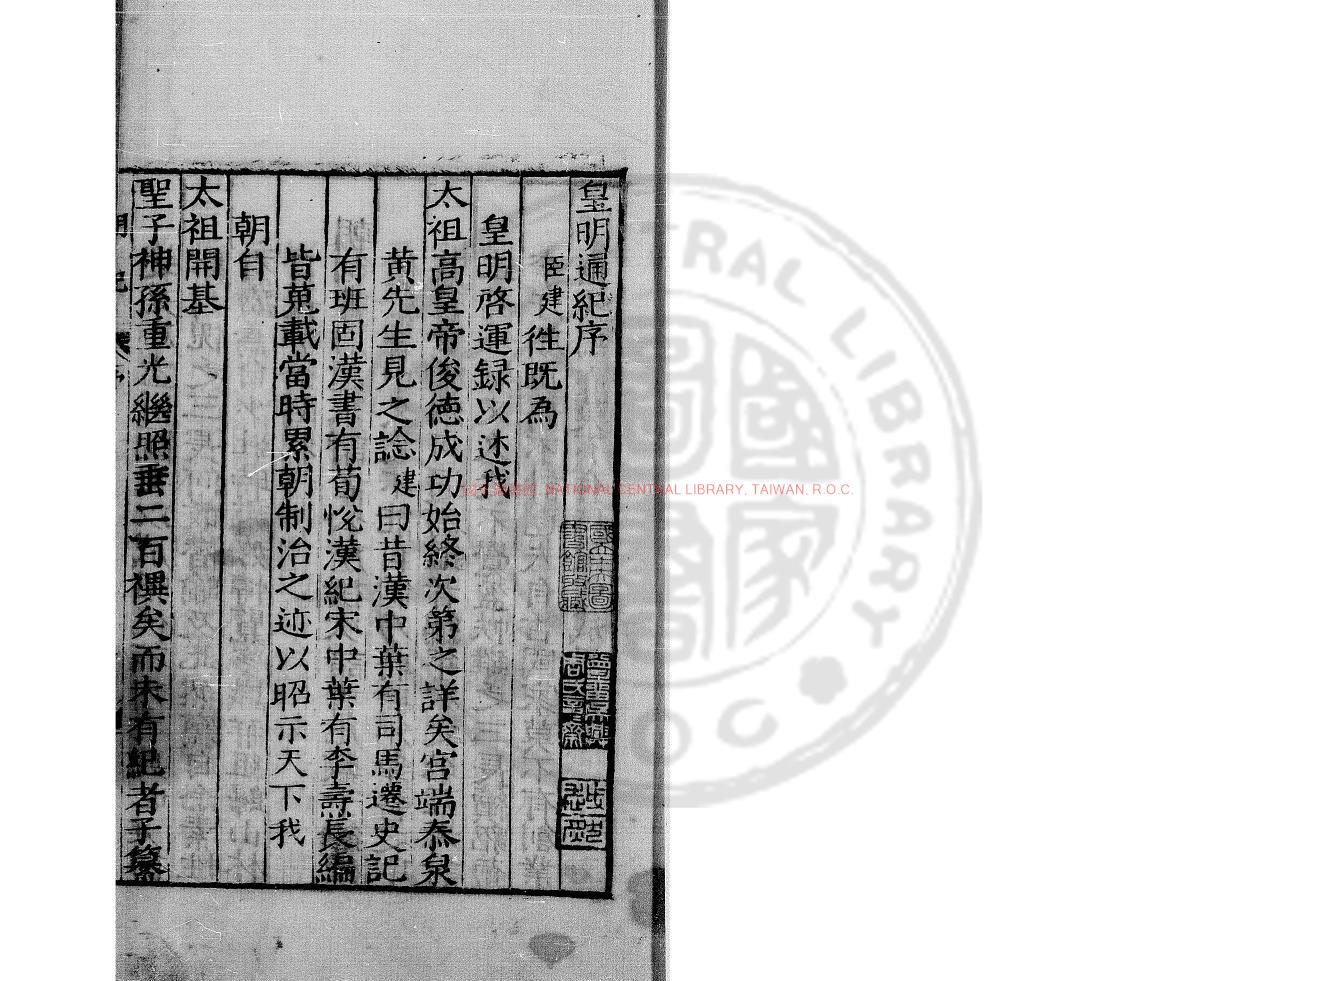 皇明通紀序
臣建徃既為
皇明啓運録以述我
太祖高皇帝俊徳成功始終次第之詳矣宮端泰泉
黄先生見之諗建曰昔漢中葉有司馬遷史記
有班固漢書有荀悅漢紀宋中葉有李燾長編
皆蒐載當時累朝制治之迹以昭示天下我
朝自
太祖開基
聖子神孫重光繼照垂二百禩矣而未有紀者子纂
NATIONAL CENTRAL LIBRARY, TAIWAN, R.O.C.